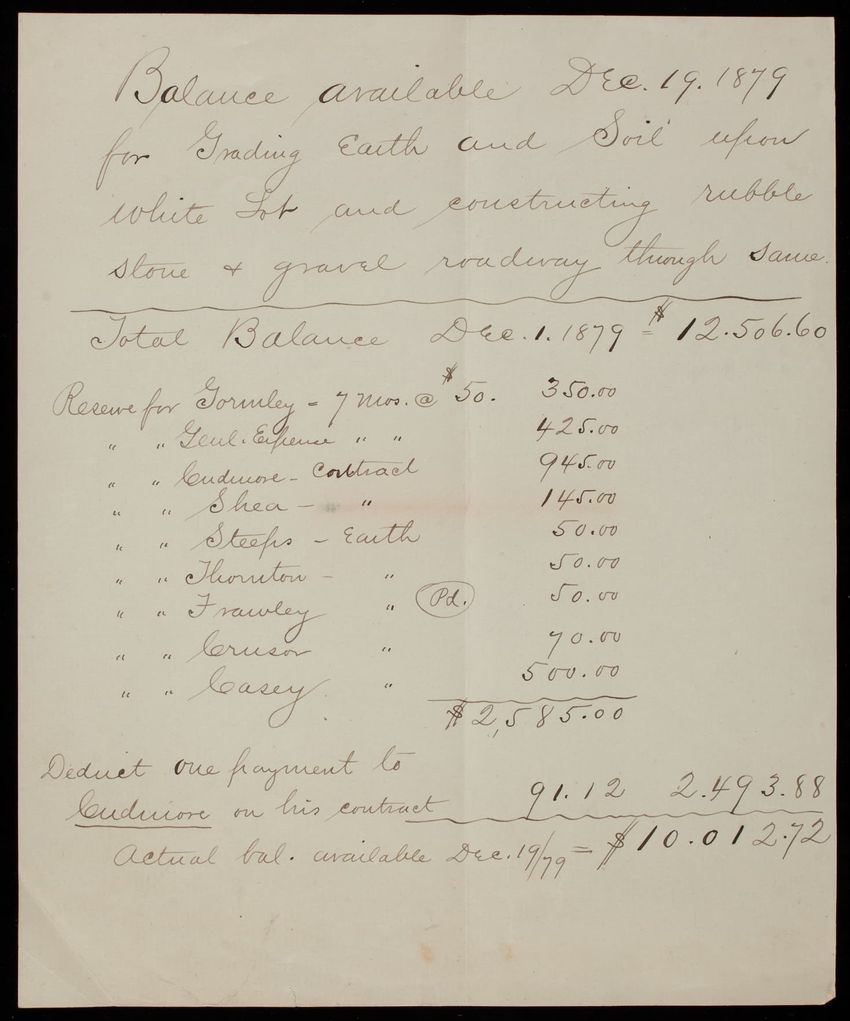 Balance available Dec. 19. 1879
for Grading Earth and Soil upon
White Lot and constructing rubble
stone & gravel roadway through same.
Total Balance Dec. 1. 1879 = $12.506.60
Reserve for Gormley = 7 mos. @ $50. 350.00
" " Genl. Expense " " 425.00
" " Cudmore - Contract 945.00
" " Shea - " 145.00
" " Steeps - Earth 50.00
" " Thornton - " 50.00
" " Frawley " Pd. 50.00
" " Crusor " 70.00
" " Casey " 500.00
$2,585.00
Deduct one payment to
Cudmore on his contract 91.12 2.493.88
Actual bal. available Dec. 19/79 = $10.012.72